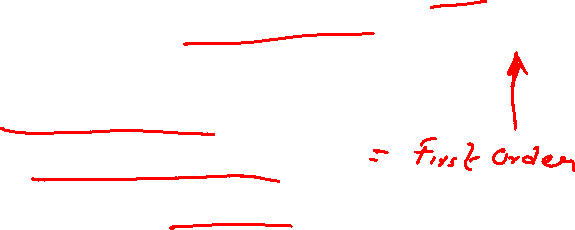 = First order